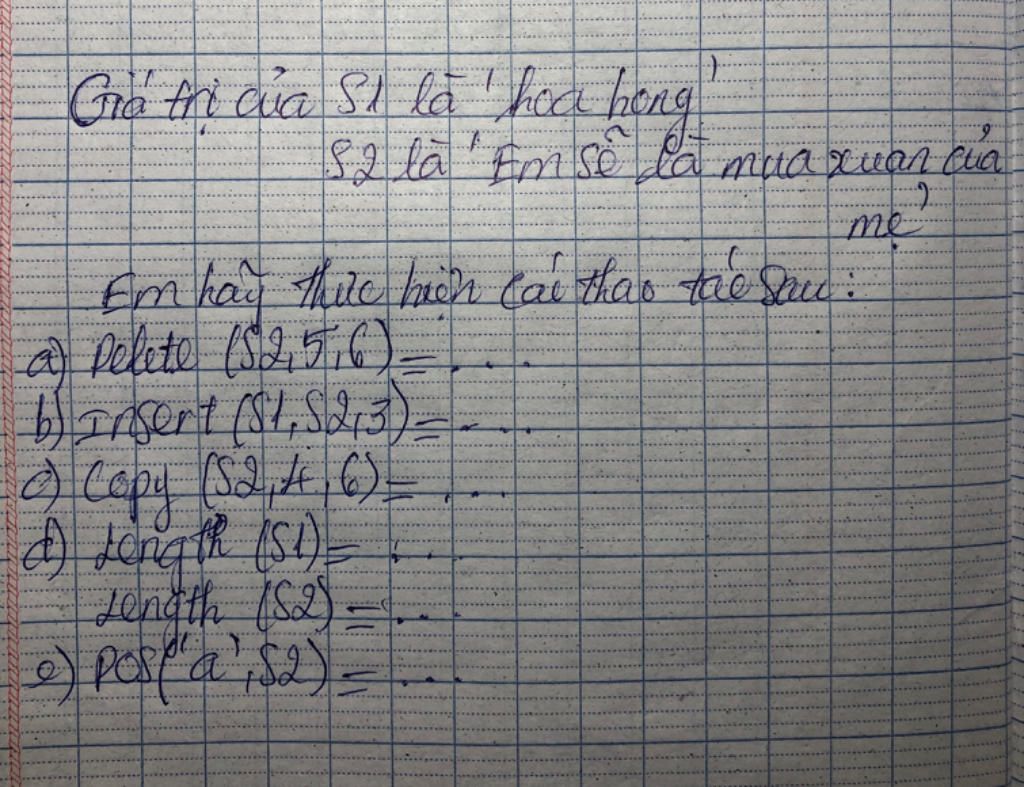 Giá trị của S1 là 'hoa hong'
S2 là 'Em sẽ là mua xuan của
mẹ'
Em hãy thực hiện các thao tác sau:
a) Delete (S2,5,6)=...
b) Insert (S1,S2,3)=...
c) Copy (S2,4,6)=....
d) Length (S1)=...
Length (S2)=...
e) POS('a',S2)=...